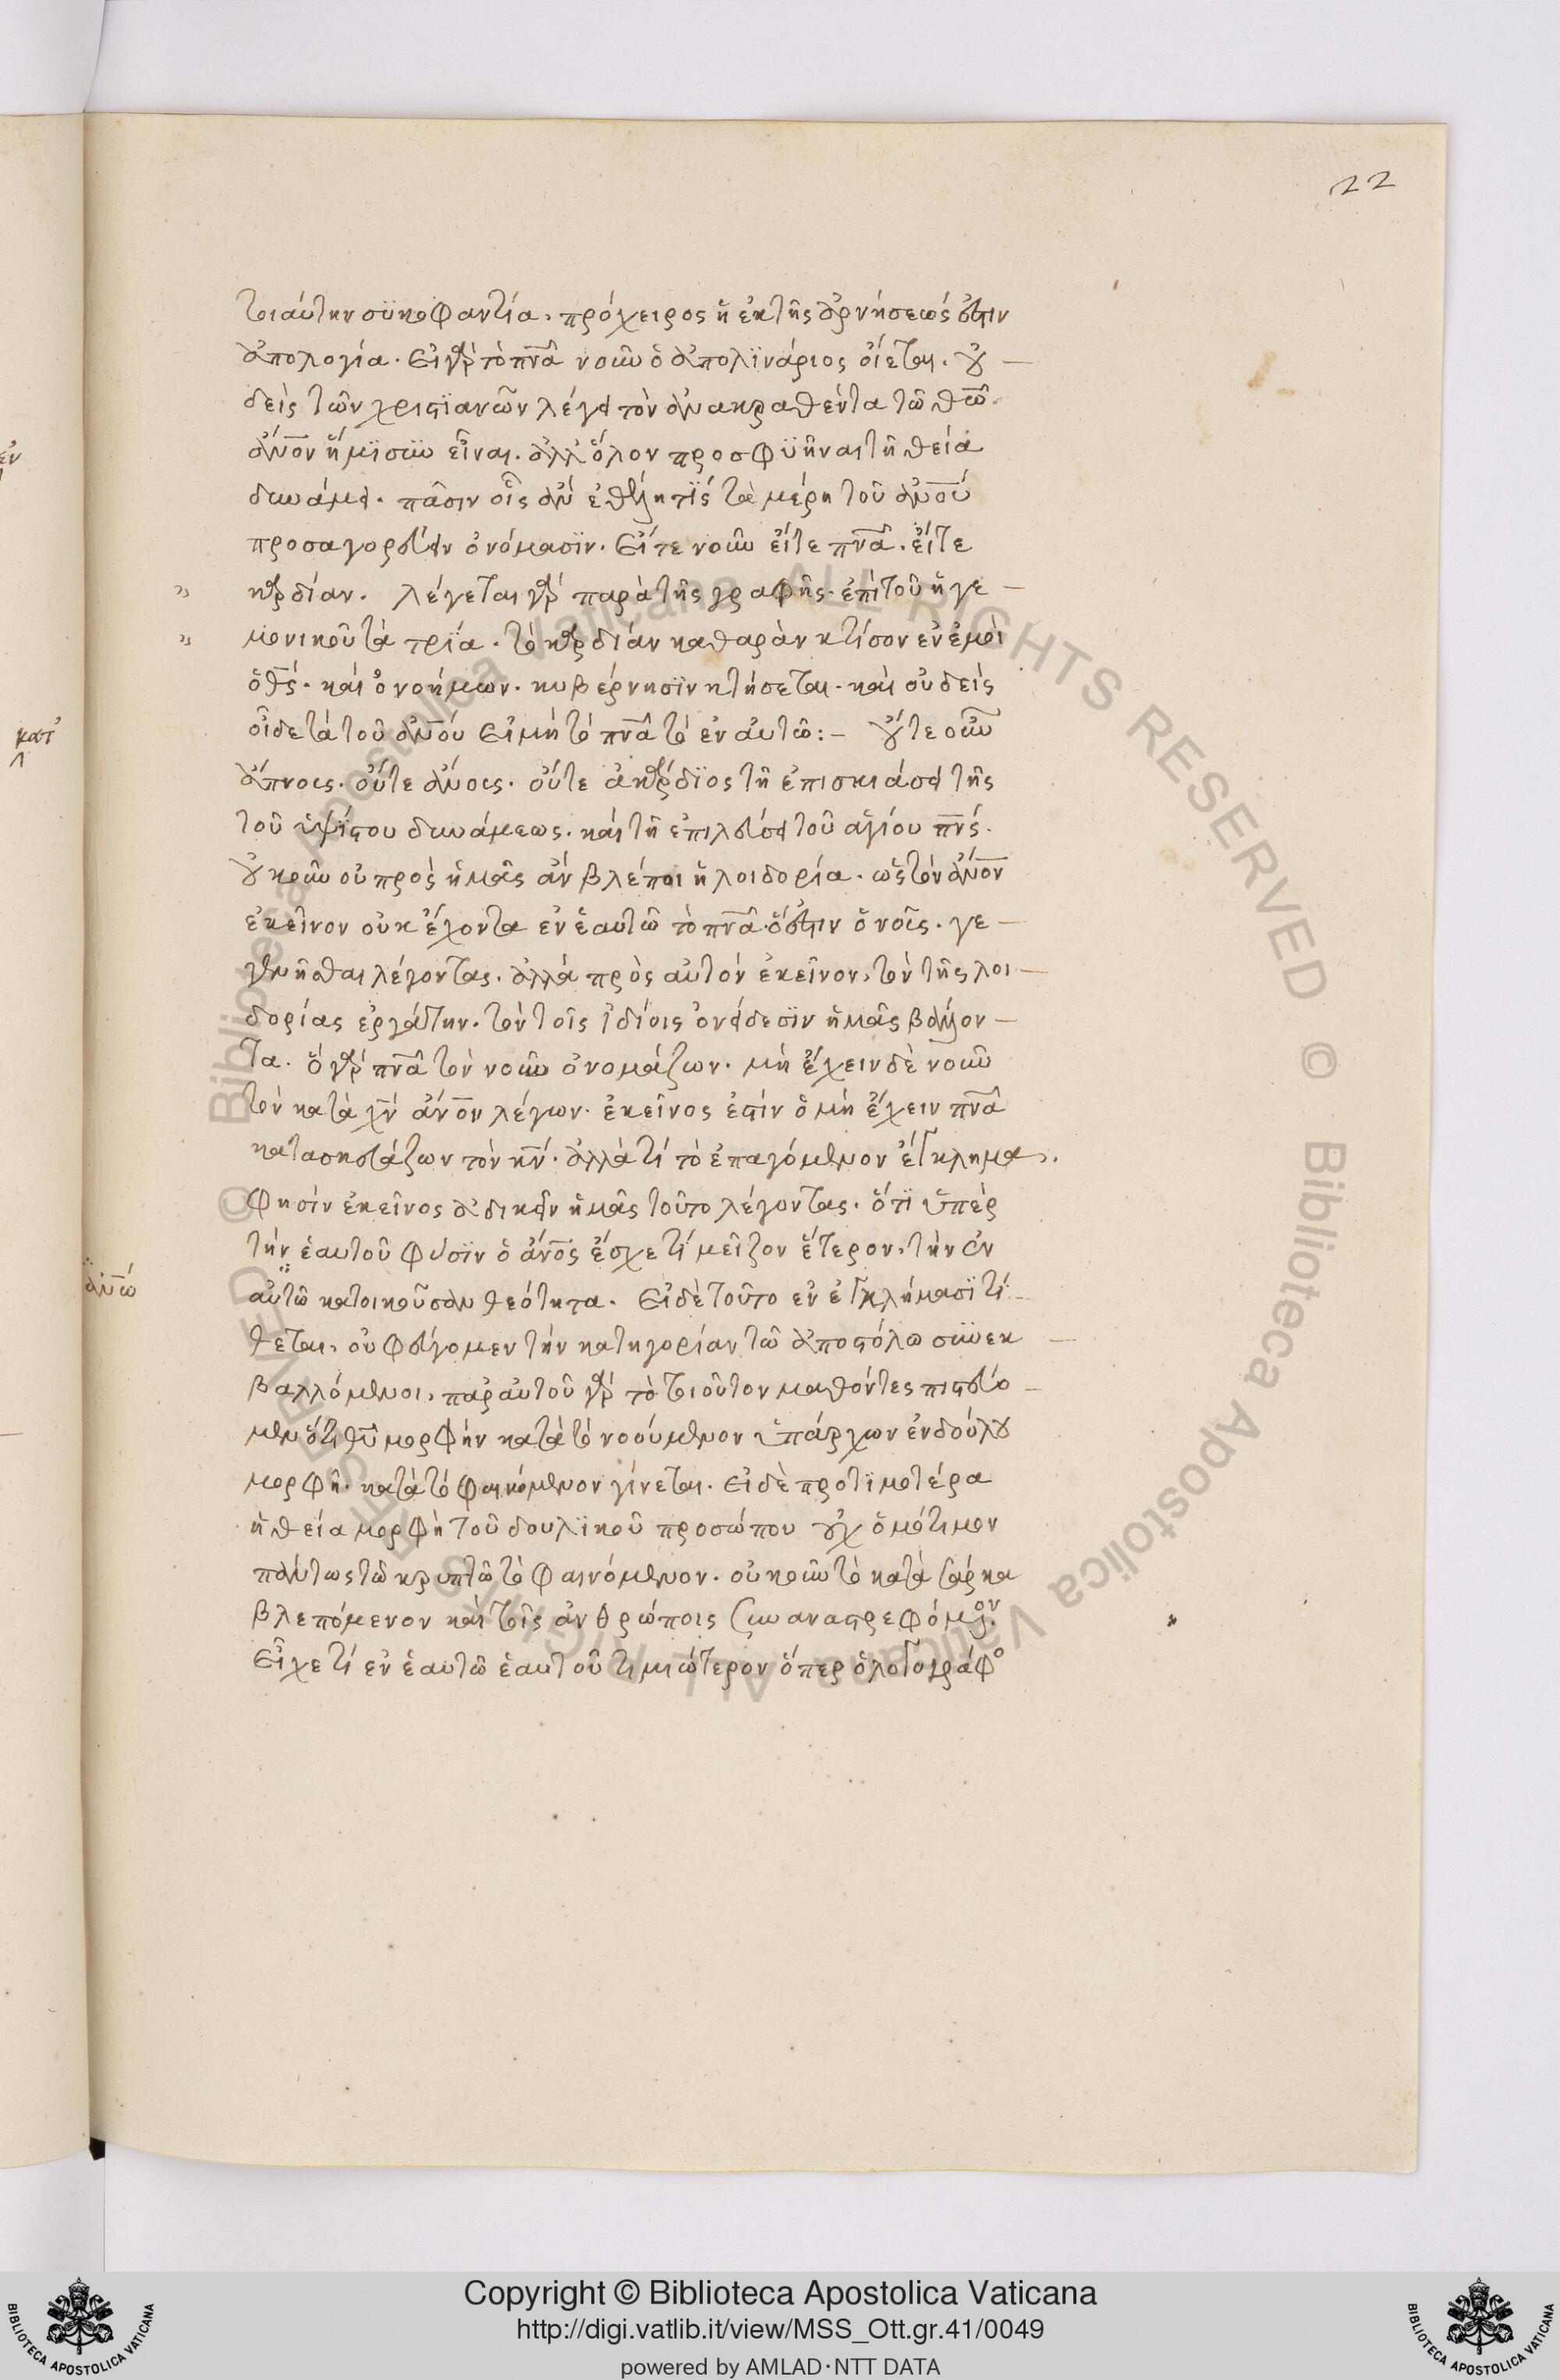 22
τοιαύτην συκοφαντία, πρόχειρος ἡ ἐκ τῆς ἀρνήσεώς ἐστιν
ἀπολογία. Εἰ γὰρ τὸ πνα νοῦν ὁ ἀπολϊνάριος οἴεται. οὐ—
δεὶς τῶν χριστϊανῶν λέγει τὸν ἀνακραθέντα τῶ θω
ἄνον ἥμϊσυν εἶναι. ἀλλ' ὅλον προσφϋῆναι τῆ θεία
δυνάμει. πᾶσιν οἷς ἂν ἐθέλη τῒς τὰ μέρη τοῦ ἀνου
προσαγορεύειν ὀνόμασϊν. Εἴτε νοῦν εἴτε πνα. εἴτε
" καρδίαν. λέγεται γὰρ παρὰ τῆς γραφῆς. ἐπὶ τοῦ ἡγε—
" μονικοῦ τὰ τρϊα. τὸ καρδίαν καθαρὰν κτίσον ἐν ἐμοὶ
ὁ θς. καὶ ὁ νοήμων. κυβέρνησϊν κτήσεται. καὶ οὐδεὶς
οἶδε τὰ τοῦ ἀνου εἰ μὴ τὸ πνα τὸ ἐν αὐτῶ:— οὔτε οὖν
ἄπνοις. οὔτε ἄνοις. οὔτε ἀκάρδϊος τῆ ἐπισκιάσει τῆς
τοῦ ὑψϊστου δυνάμεως. καὶ τῆ ἐπιλεύσει τοῦ ἁγίου πνς.
οὐκοῦν οὐ πρὸς ἡμᾶς ἂν βλέποι ἡ λοιδορία. ὡς τὸν ἄνον
ἐκεῖνον οὐκ ἔχοντα ἐν ἑαυτῶ τὸ πνα. ὅ ἐστιν ὁ νοῦς. γε—
γενῆσθαι λέγοντας. ἀλλὰ πρὸς αὐτὸν ἐκεῖνον, τὸν τῆς λοι—
δορίας ἐργάτην. τὸν τοῖς ἰδίοις ὀνείδεσϊν ἡμᾶς βάλλον—
τα. ὁ γὰρ πνα τὸν νοῦν ὀνομάζων. μὴ ἔχειν δὲ νοῦν
τὸν κατὰ χν ἄνον λέγων. ἐκεῖνος ἐστὶν ὁ μὴ ἔχειν πνα
κατασκευάζων τὸν κν. ἀλλὰ τί τὸ ἐπαγόμενον ἔγκλημα.
φησὶν ἐκεῖνος ἀδικεῖν ἡμᾶς τοῦτο λέγοντας. ὅτϊ ὑπὲρ
τὴν ἑαυτοῦ φύσϊν ὁ ἄνος ἔσχε τί μεῖζον ἕτερον, τὴν ἐν
ἀνω αὐτῶ κατοικοῦσαν θεότητα. Εἰ δὲ τοῦτο ἐν ἐγκλήμασϊ τί—
θεται, οὐ φεύγομεν τὴν κατηγορίαν τῶ ἀποστόλω συνεκ—
βαλλόμενοι, παρ' αὐτοῦ γὰρ τὸ τοιοῦτον μαθόντες πιστεύο—
μεν ὅτι θυ μορφὴν κατὰ τὸ νοούμενον ὑπάρχων ἐν δούλου
μορφῆ. κατὰ τὸ φαινόμενον γίνεται. εἰ δὲ προτϊμοτέρα
ἡ θεία μορφὴ τοῦ δουλϊκοῦ προσώπου οὐχ ὁμότιμον
πάντως τῶ κρυπτῶ τὸ φαινόμενον. οὐκοῦν τὸ κατὰ σάρκα
βλεπόμενον καὶ τοῖς ἀνθρώποις συναναστρεφόμενον.
Εἶχε τί ἐν ἑαυτῶ ἑαυτοῦ τιμιώτερον ὅπερ ὁ λογογράφο
ἐν
κατ
Copyright © Biblioteca Apostolica Vaticana
http://digi.vatlib.it/view/MSS_Ott.gr.41/0049
powered by AMLAD·NTT DATA
BIBLIOTECA APOSTOLICA VATICANA
BIBLIOTECA APOSTOLICA VATICANA
© Biblioteca Apostolica Vaticana ALL RIGHTS RESERVED © Biblioteca Apostolica Vaticana ALL RIGHTS RESERVED